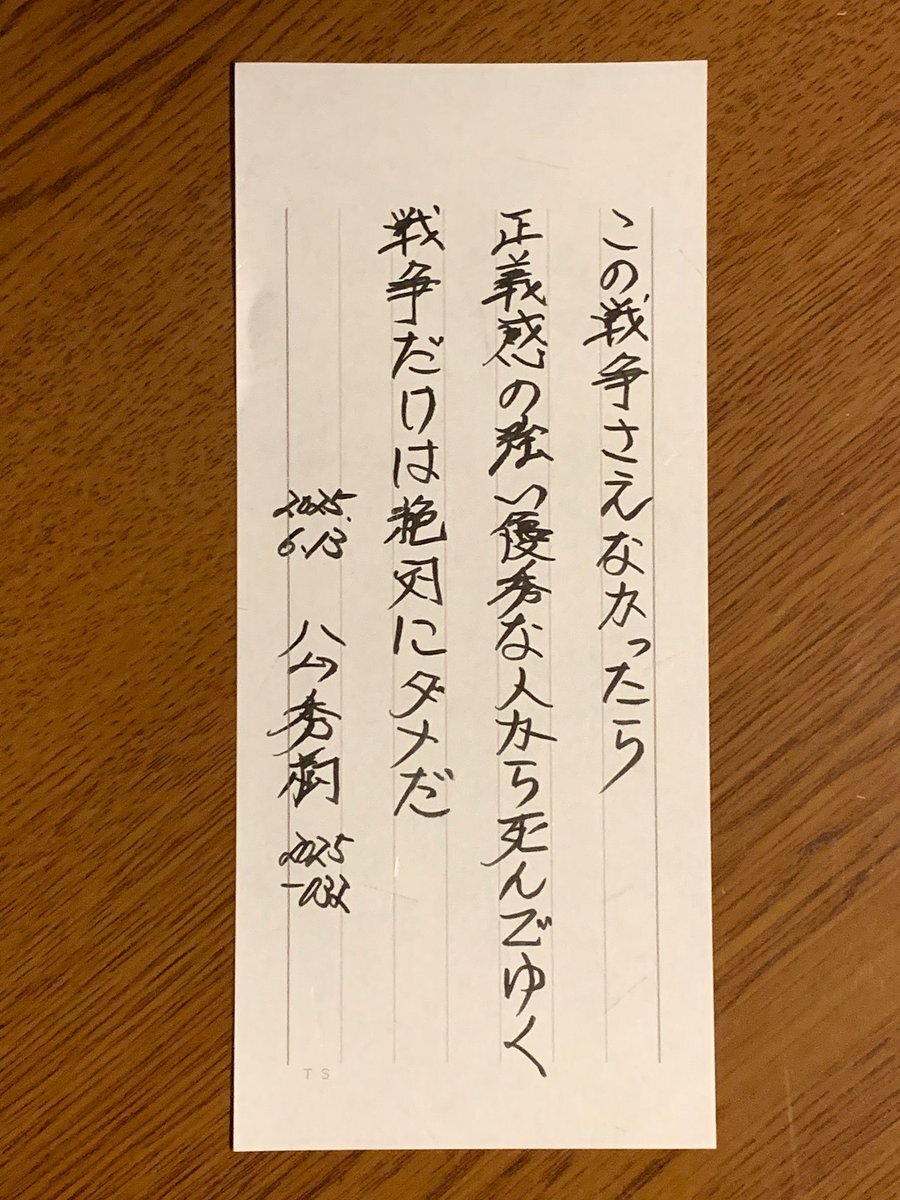 この戦争さえなかったら
正義感の強い優秀な人から死んでゆく
戦争だけは絶対にダメだ
2025.
6.13
秀樹
2025
T S